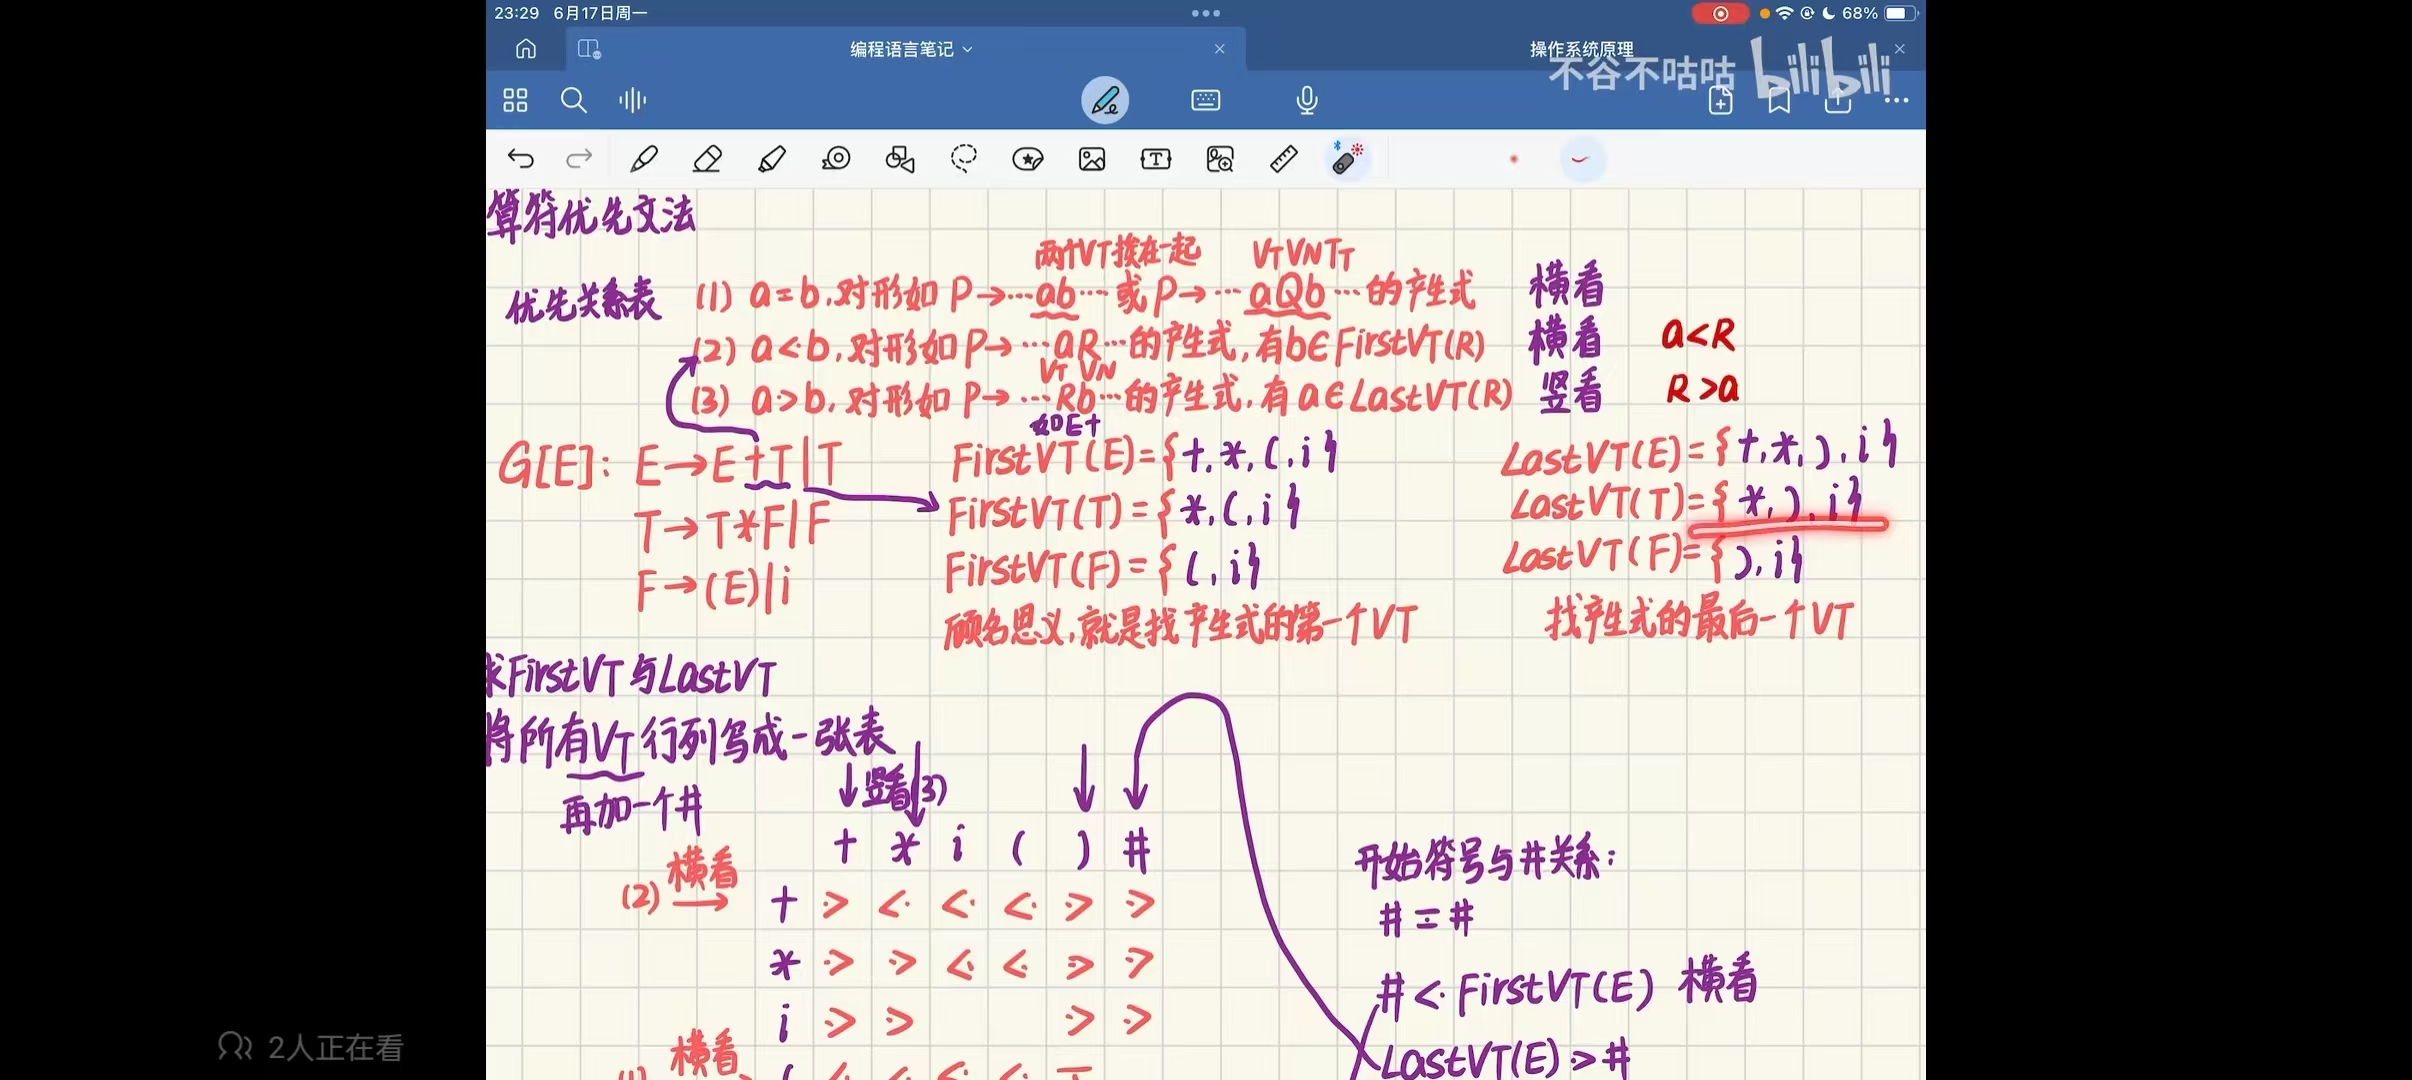 23:29 6月17日周一
68%
编程语言笔记
操作系统原理
不谷不咕咕 bilibili
算符优先文法
两个VT挨在一起 VTVNTT
优先关系表 (1) a=b,对形如 P→…ab…或P→…aQb…的产生式 横看
(2) a<·b,对形如P→…aR…的产生式,有b∈FirstVT(R) 横看 a<R
VT VN
(3) a·>b,对形如 P→…Rb…的产生式,有a∈LastVT(R) 竖看 R>a
如E+
G[E]: E→E+T|T FirstVT(E)={+,*,(,i} LastVT(E)={+,*,),i}
T→T*F|F FirstVT(T)={*,(,i} LastVT(T)={*,),i}
F→(E)|i FirstVT(F)={(,i} LastVT(F)={),i}
顾名思义,就是找产生式的第一个VT 找产生式的最后一个VT
求FirstVT与LastVT
将所有VT行列写成一张表
再加一个# 竖看(3)
+ * i ( ) #
开始符号与#关系:
(2) 横看 + ·> <· <· <· ·> ·>
#=#
* ·> ·> <· <· ·> ·>
#<·FirstVT(E) 横看
i ·> ·> ·> ·>
LastVT(E)·>#
横看
2人正在看